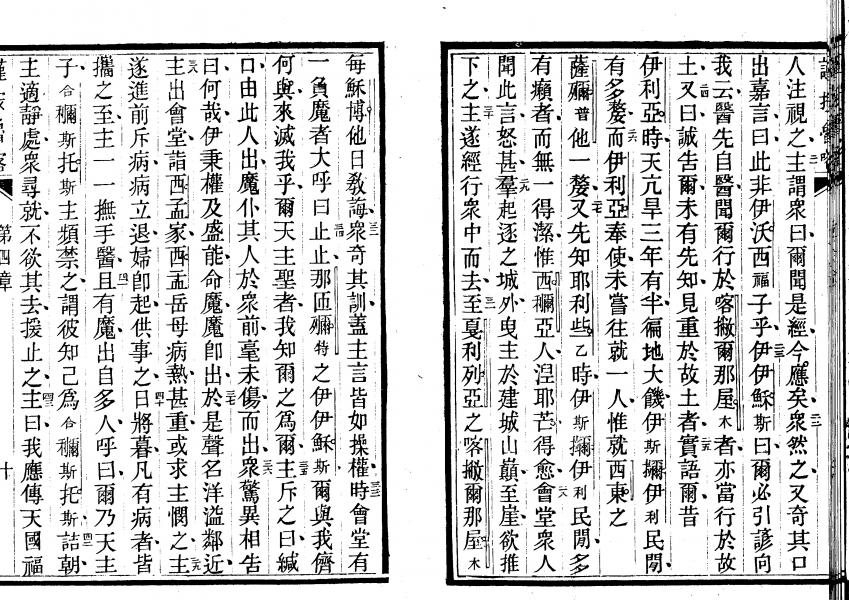 人注視之主謂衆曰爾聞是經今應矣衆然之又奇其口
出嘉言曰此非伊沃西福子乎伊伊穌斯曰爾必引諺向
我云醫先自醫聞爾行於喀撇爾那屋木者亦當行於故
土又曰誠吿爾未有先知見重於故土者實語爾昔
伊利亞時天亢旱三年有半徧地大饑伊斯㘓伊利民閒
有多嫠而伊利亞奉使未嘗往就一人惟就西東之
薩㘓普他一嫠又先知耶利些乙時伊斯㘓伊利民閒多
有癩者而無一得潔惟西㘓亞人涅耶芒得愈會堂衆人
聞此言怒甚羣起逐之城外曳主於建城山巔至崖欲推
下之主遂經行衆中而去至戛利列亞之喀撇爾那屋木
每穌博他日敎誨衆奇其訓蓋主言皆如操權時會堂有
一負魔者大呼曰止止那匝㘓特之伊伊穌斯爾與我儕
何與來滅我乎爾天主聖者我知爾之爲爾主斥之曰緘
口由此人出魔仆其人於衆前毫未傷而出衆驚異相吿
曰何哉伊秉權及盛能命魔魔卽出於是聲名洋溢鄰近
主出會堂詣西孟家西孟岳母病熱甚重或求主憫之主
遂進前斥病病立退婦卽起供事之日將暮凡有病者皆
攜之至主一一撫手醫且有魔出自多人呼曰爾乃天主
子合㘓斯托斯主頻禁之謂彼知己爲合㘓斯托斯詰朝
主適靜處衆尋就不欲其去援止之主曰我應傳天國福
第四章
十